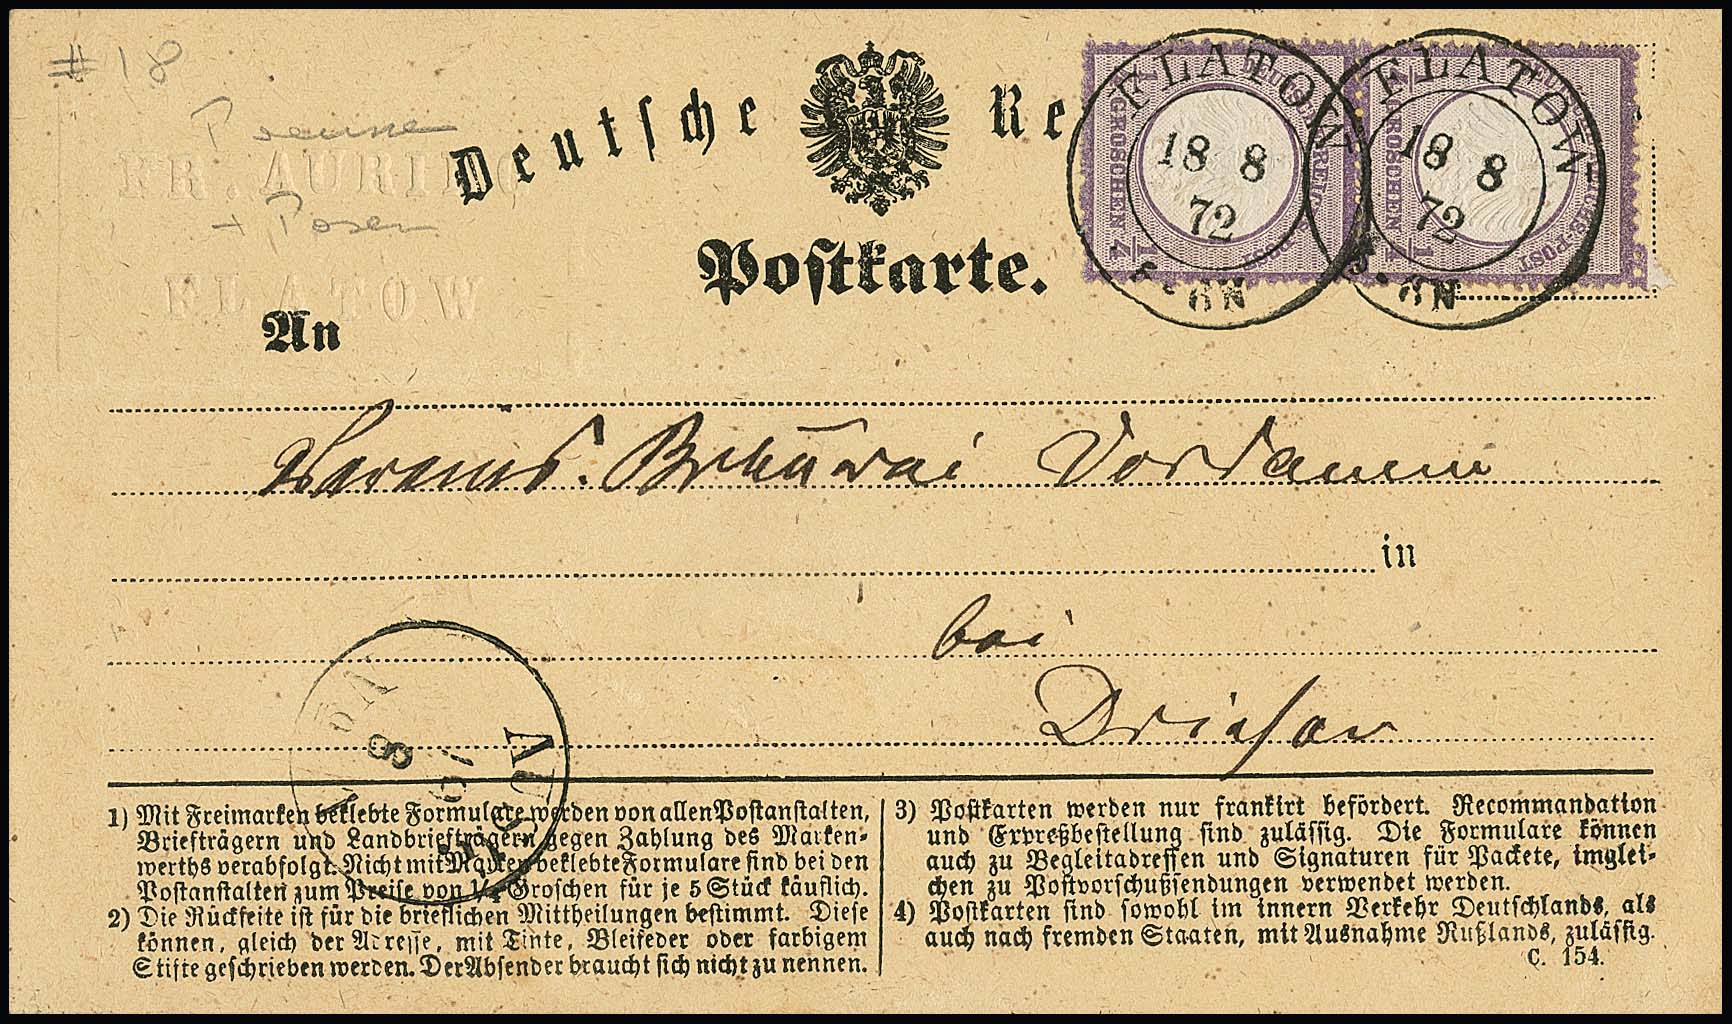 # 18
Preussen
FR. AURING
+ Posen
FLATOW
Deutsche Re
Postkarte.
FLATOW
18 8
72
5-6N
FLATOW
18 8
72
5-6N
¼ GROSCHEN ¼
An
Vordamm
in
bei
Driesen
AUS
8
1) Mit Freimarken beklebte Formulare werden von allen Postanstalten,
Briefträgern und Landbriefträgern gegen Zahlung des Marken-
werths verabfolgt. Nicht mit Marken beklebte Formulare sind bei den
Postanstalten zum Preise von ¼ Groschen für je 5 Stück käuflich.
2) Die Rückseite ist für die brieflichen Mittheilungen bestimmt. Diese
können, gleich der Adresse, mit Tinte, Bleifeder oder farbigem
Stifte geschrieben werden. Der Absender braucht sich nicht zu nennen.
3) Postkarten werden nur frankirt befördert. Recommandation
und Expreßbestellung sind zulässig. Die Formulare können
auch zu Begleitadressen und Signaturen für Packete, imglei-
chen zu Postvorschußsendungen verwendet werden.
4) Postkarten sind sowohl im innern Verkehr Deutschlands, als
auch nach fremden Staaten, mit Ausnahme Rußlands, zulässig.
C. 154.